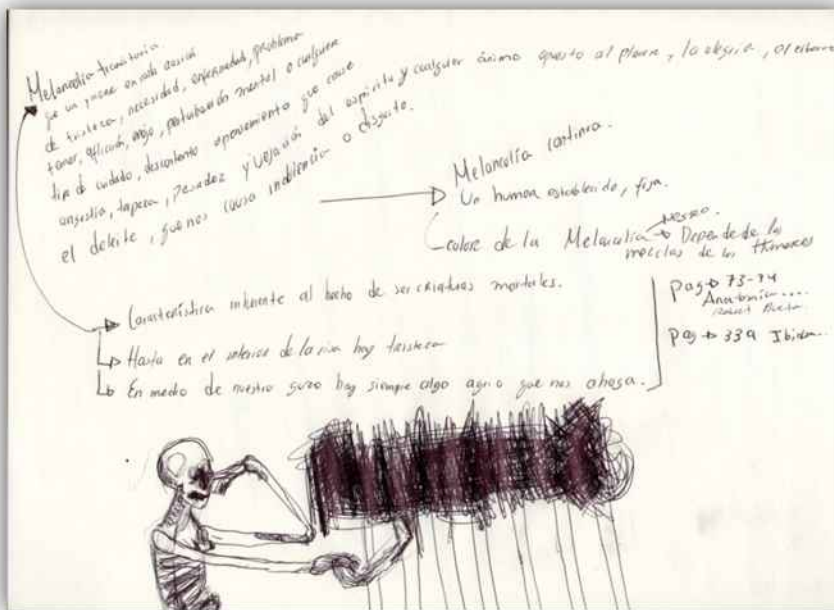 Melancolía transitoria
que va y viene en cada ocasión
de tristeza, necesidad, enfermedad, problema
temor, aflicción, enojo, perturbación mental o cualquier
tipo de cuidado, descontento o pensamiento que cause
angustia, torpeza, pesadez y vejación del espíritu y cualquier ánimo opuesto al placer, la alegría, el
el deleite, que nos causa indolencia o disgusto.
Melancolía continua.
Un humor establecido, fijo.
colore de la Melancolía → negro.
Depende de las
mezclas de los Humores
Característica inherente al hecho de ser criaturas mortales.
Hasta en el interior de la risa hay tristeza
En medio de nuestro gozo hay siempre algo agrio que nos ahoga.
pag → 73-74
Anatomía....
Robert Burton
pag → 339 Ibidem...